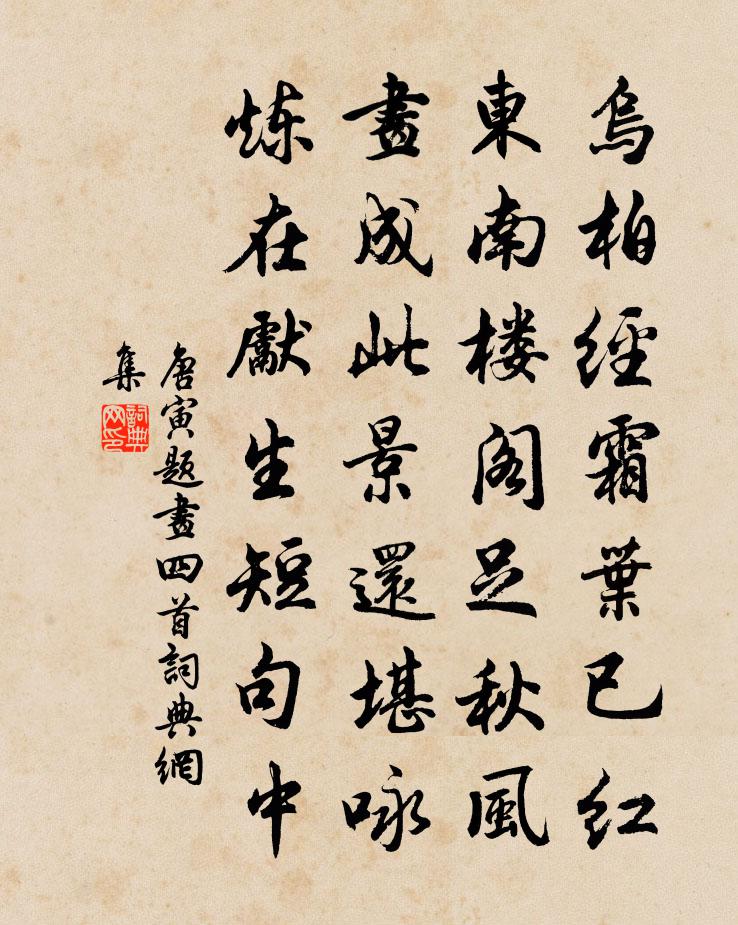 烏柏經霜葉已紅
東南楼阁足秋風
畫成此景還堪咏
炼在獻生短句中
唐寅題畫四首詞典網
集
詞典
网印